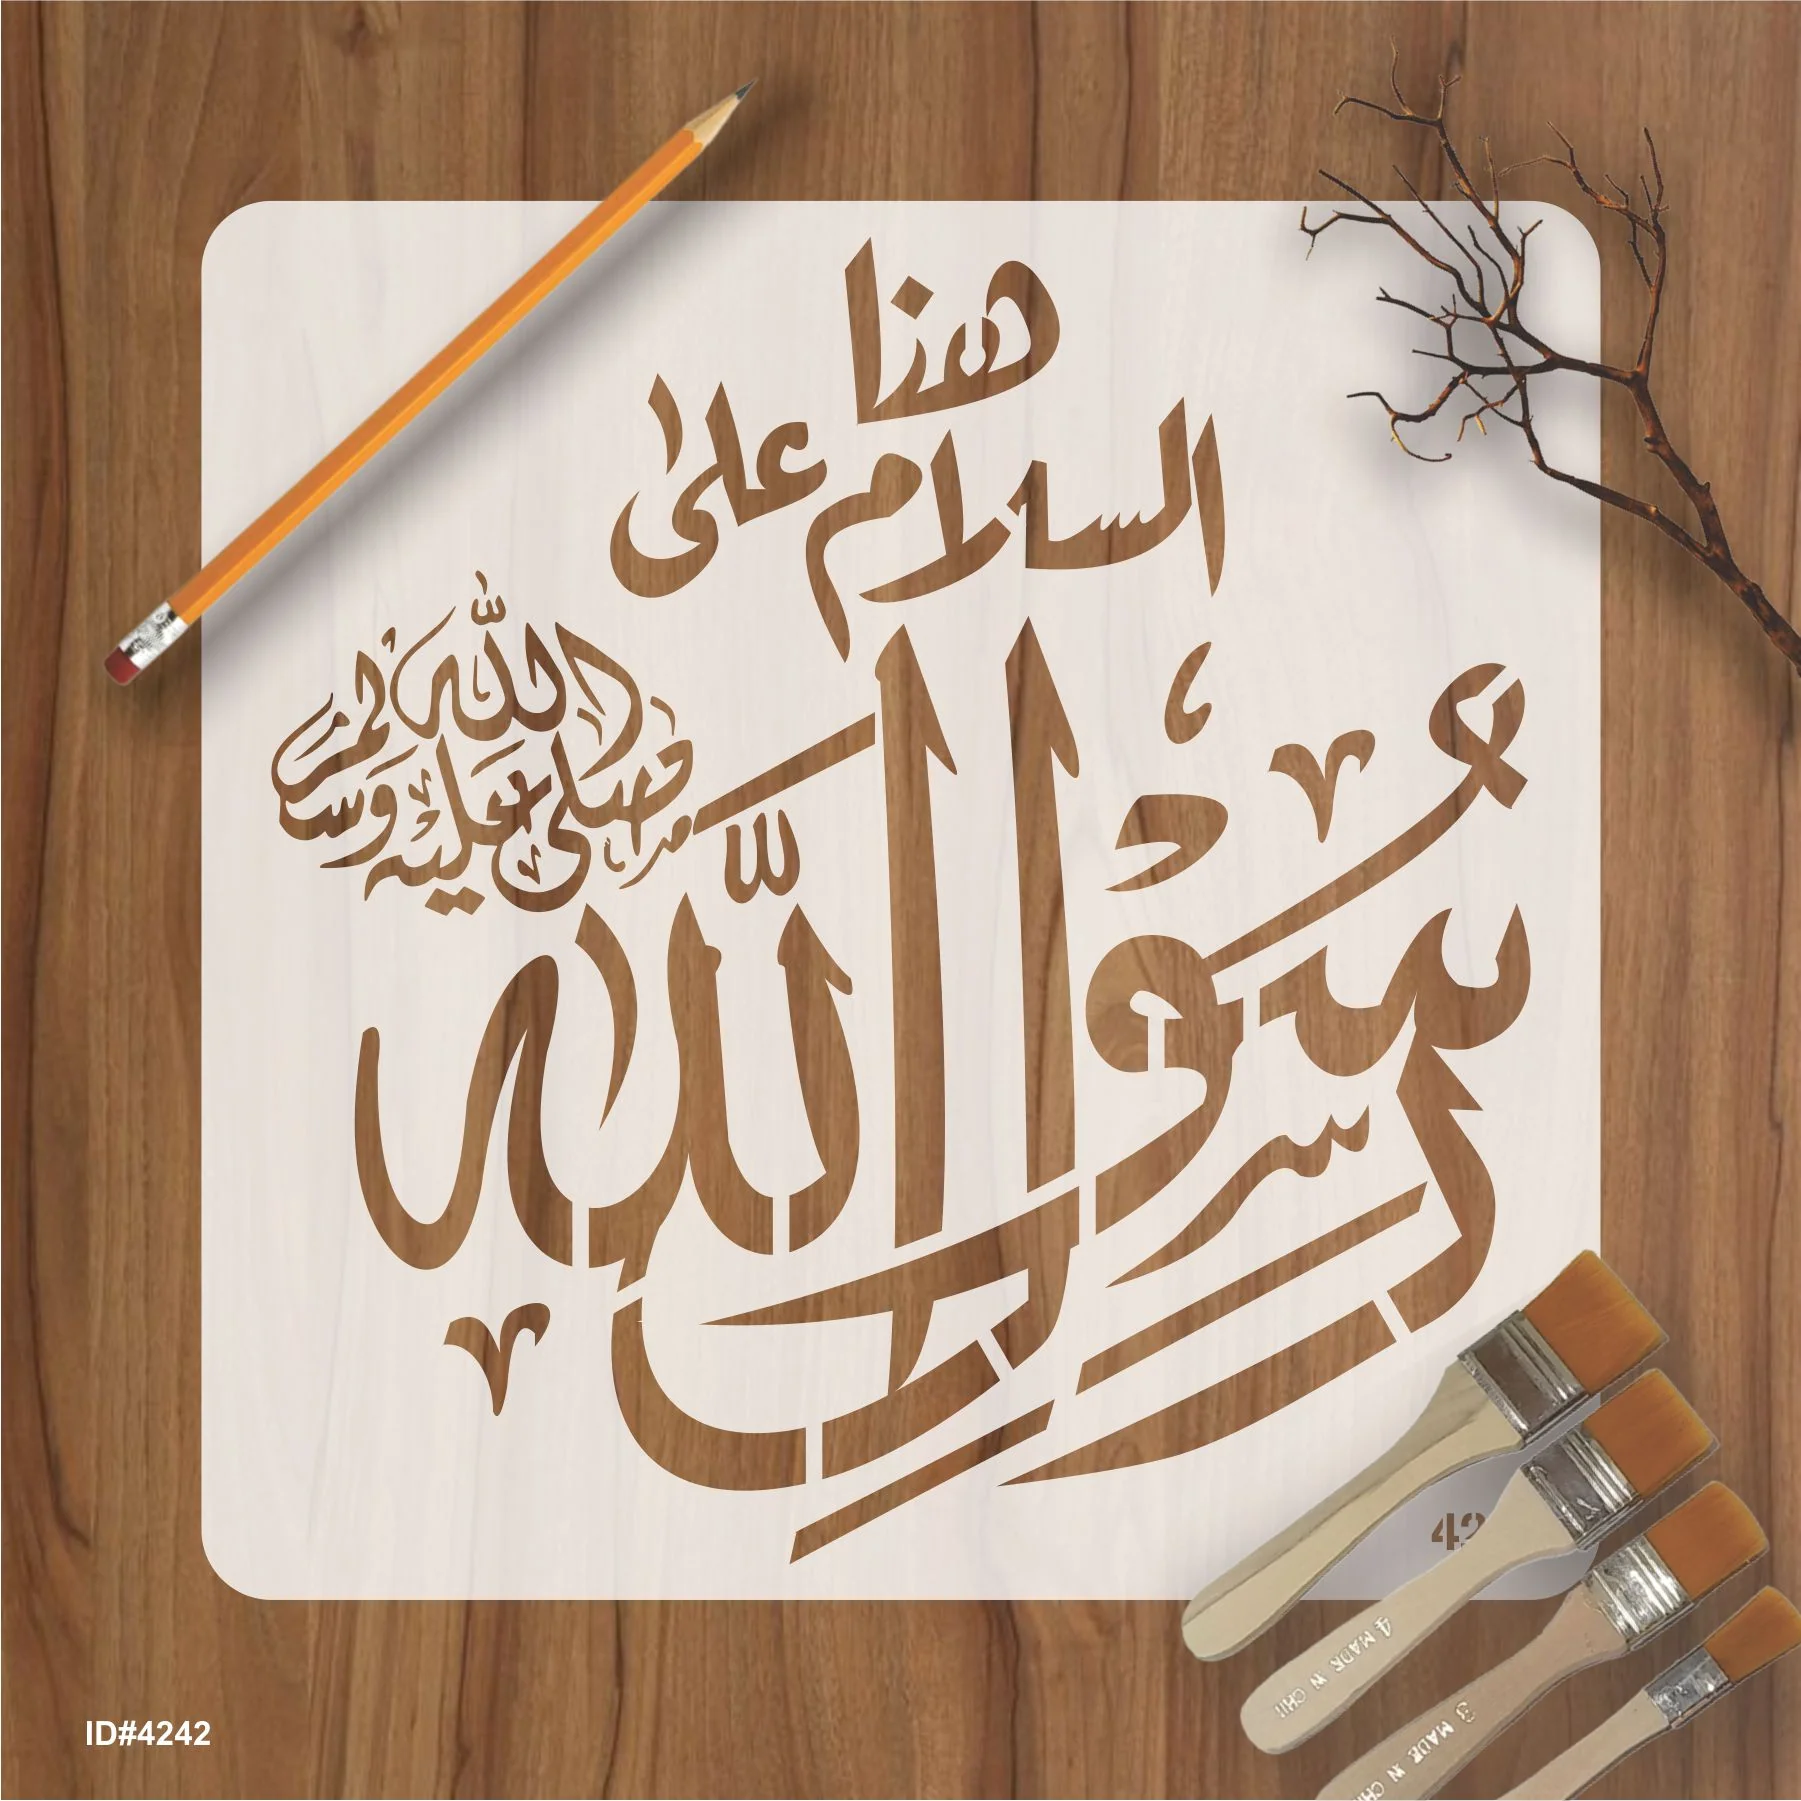 هذا
السلام على
رسول الله
صلى الله عليه وسلم
42
4 MADE IN CHI
3 MADE IN CHI
ID#4242